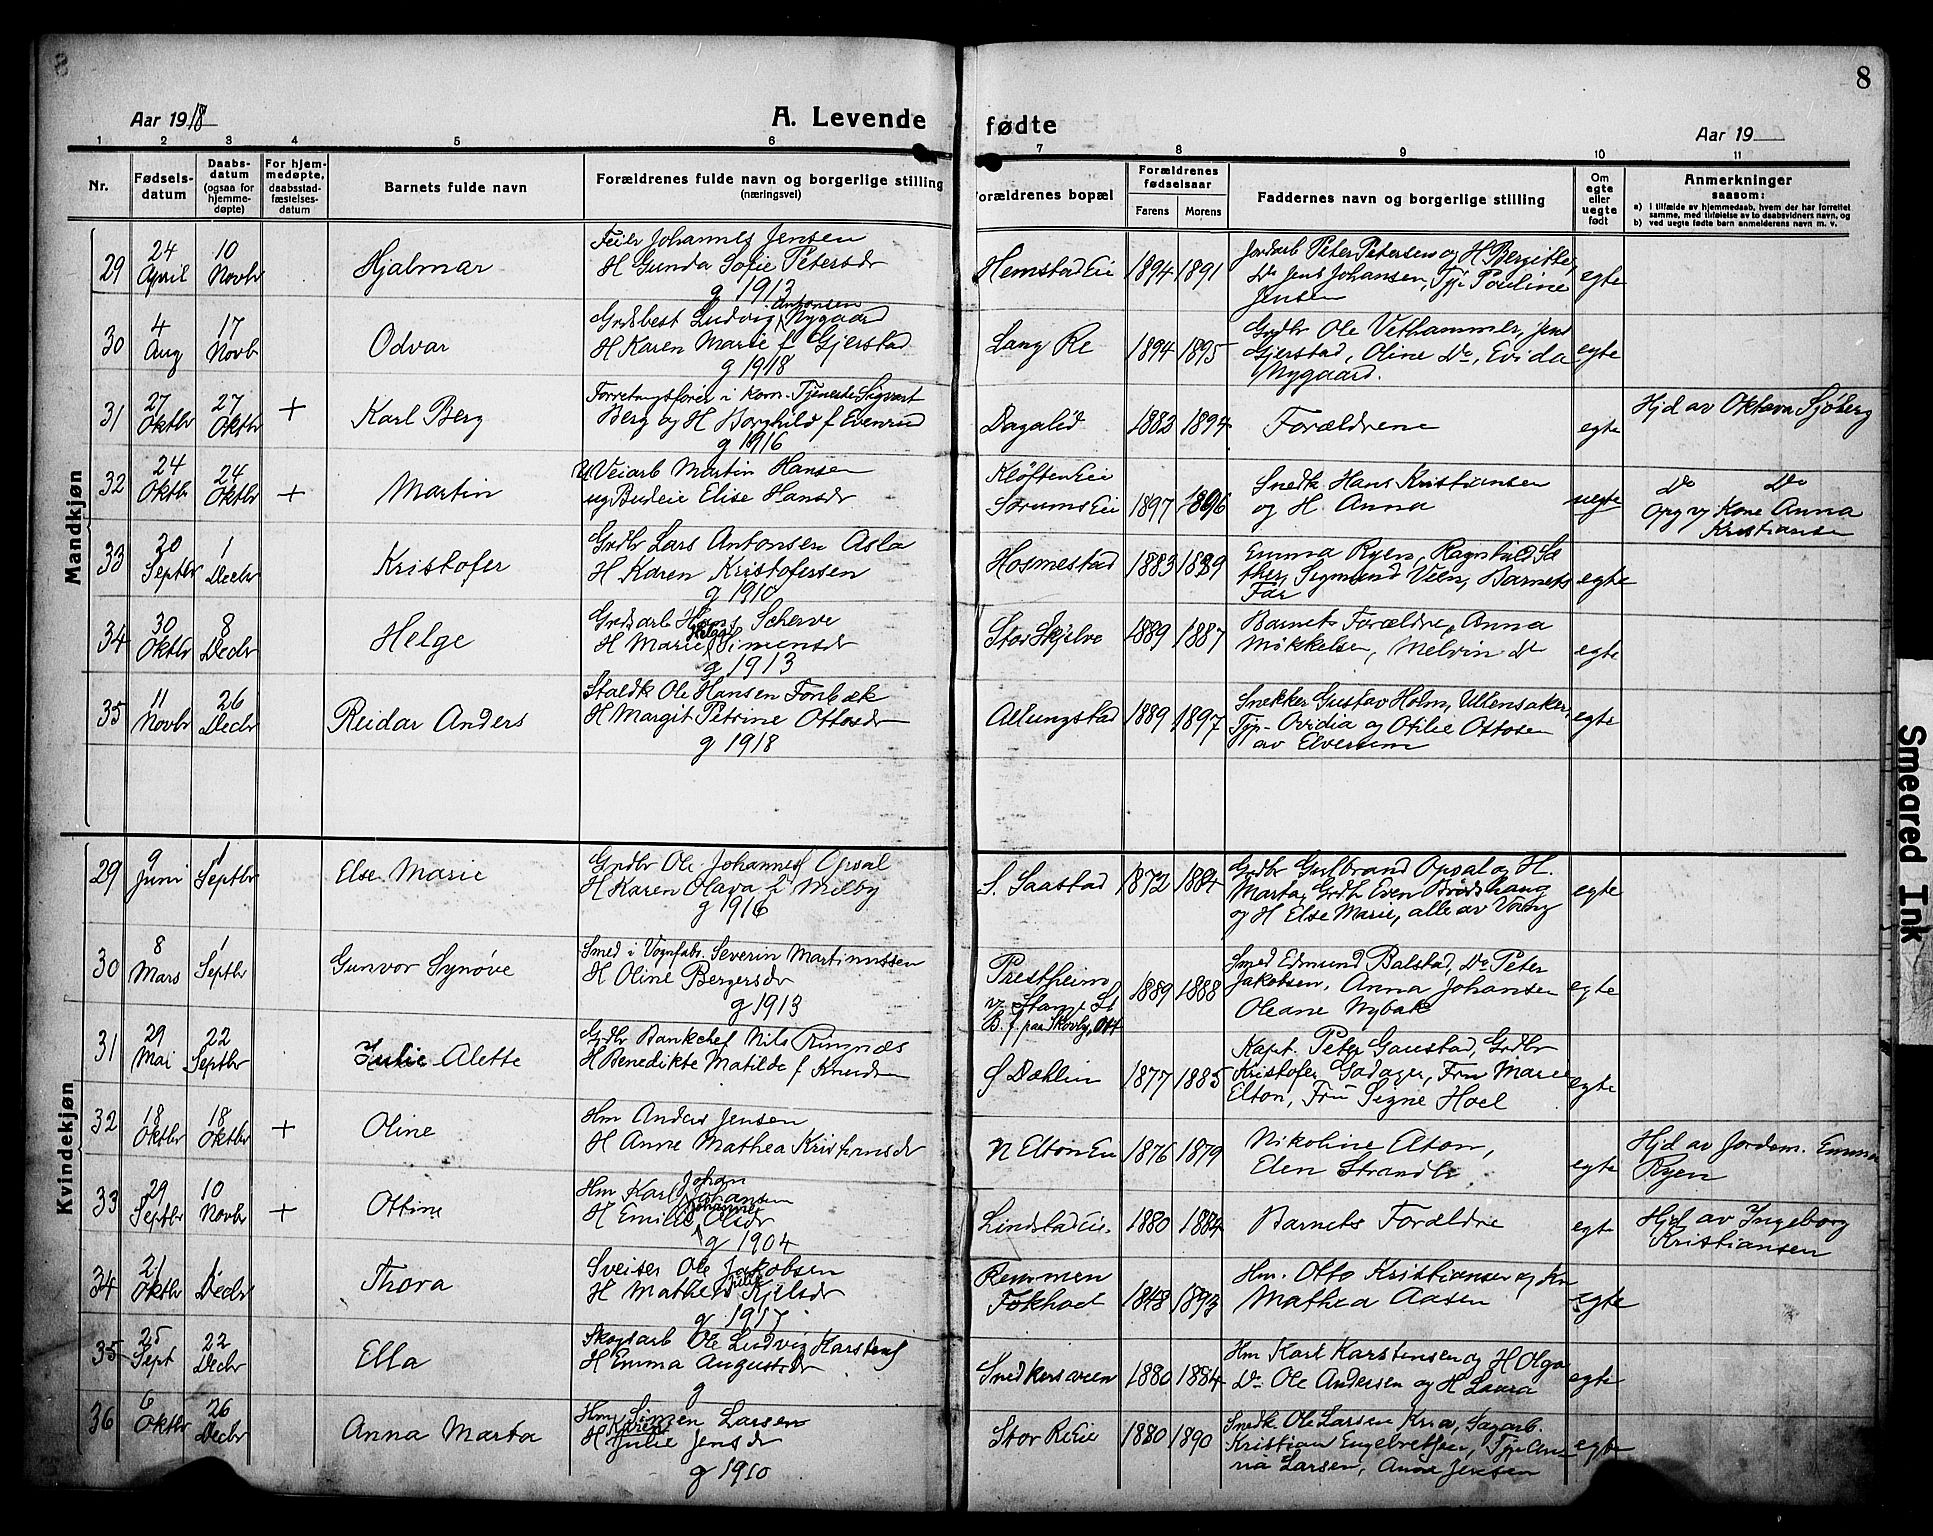 8
8
Aar 1918
A. Levende fødte
Aar 19
1 2 3 4 5 6 7 8 9 10 11
Nr.
Fødsels-
datum
Daabs-
datum
(ogsaa for
hjemme-
døpte)
For hjem-
medøpte,
daabsstad-
fæstelses-
datum
Barnets fulde navn
Forældrenes fulde navn og borgerlige stilling
(næringsvei)
Forældrenes bopæl
Forældrenes
fødselsaar
Farens Morens
Faddernes navn og borgerlige stilling
Om
egte
eller
uegte
født
Anmerkninger
saasom:
a) I tilfælde av hjemmedaab, hvem der har forrettet
samme, med tilføielse av to daabsvidners navn, og
b) ved uegte fødte barn anmelderens navn m. v.
Mandkjøn
29 24 April 10 Novbr Hjalmar
Feier Johannes Jensen
H Gunda Sofie Petersdr
g 1913
Hemstad Eie 1894 1891
Jordarb Peter Petersen og H Bergitte,
Do Jens Johansen, Tyi Pauline
Jensen
egte
30 4 Aug 17 Novb Odvar
Grdsbest Ludvig Antonsen Nygaard
H Karen Marie f Gjerstad
g 1918
Lang Re 1894 1895
Grdbr Ole Vethammer, Jens
Gjerstad, Oline Do, Evida
Nygaard.
egte
31 27 Oktbr 27 Oktbr + Karl Berg
Forretngsfører i kom. Tjeneste Sigvart
Berg og H Borghild f Evenrud
g 1916
Dagalid 1883 1894
Forældrene
egte
Hjd av Oktava Sjøberg
32 24 Oktbr 24 Oktbr + Martin
U Veiarb Martin Hansen
ug Budeie Elise Hansdr
Kløften Eie
Sørums Eie 1897 1896
Snedk Hans Kristiansen
og H. Anna
uegte
Do Do
Opg v Kone Anna
Kristiansen
33 20 Septbr 1 Decbr Kristofer
Grdbr Lars Antonsen Asla
H Karen Kristofersen
g 1910
Hosmestad 1883 1889
Emma Ryen, Ragnhild Sæ
ther, Sigmund Veen, Barnets
Far
egte
34 30 Oktbr 8 Decbr Helge
Grdsarb Hans Scherve
H Marie Helga Simensdr
g 1913
Stor Skjelve 1889 1887
Barnets Forældre, Anna
Mikkelsen, Melvin Do
egte
35 11 Novbr 26 Decbr Reidar Anders
Staldk Ole Hansen Fonbæk
H Margit Petrine Ottosdr
g 1918
Allungstad 1889 1897
Snekker Gustav Holm, Ullensaker,
Typ. Ovidia og Otilie Ottosen
av Elverum
egte
Kvindekjøn
29 9 Juni 1 Septbr Else Marie
Grdbr Ole Johannes Opsal
H Karen Olava f Milby
g 1916
S. Saastad 1872 1884
Grdbr Gulbrand Opsal og H.
Marta, Grdb Even Brødshaug
og H Else Marie, alle av Vang
egte
30 8 Mars 1 Septbr Gunvor Synøve
Smed i Vognfabr. Severin Martinussen
H Oline Bergersdr
g 1913
Prestheim
v. Stange St
B. f. paa Skovly, Ott 1889 1888
Smed Edmund Balstad, Do Peter
Jakobsen, Anna Johansen
Oleane Nybak
egte
31 29 Mai 22 Septbr Julie Alette
Grdbr Bankchef Nils Ringnæs
H Benedikte Matilde f Knudsen
S Dæhlin 1877 1885
Kapt. Peter Gaustad, Grdbr
Kristofer Gadager, Fru Marie
Elton, Fru Signe Hoel
egte
32 18 Oktbr 18 Oktbr + Oline
Hm Anders Jensen
H Anne Mathea Kristensdr
N Elton Eie 1876 1879
Nikoline Elton,
Elen Strandli
egte
Hjd av Jordem. Emma
Ryen
33 29 Septbr 10 Novbr + Ottine
Hm Karl Johan Johansen
H Emilie Johanne Olsdr
g 1904
Lindstad Eie. 1880 1884
Barnets Forældre
egte
Hjd av Ingeborg
Kristiansen
34 21 Oktbr 1 Decbr Thora
Sveiser Ole Jakobsen
H Mathea Julie Kjelsdr
g 1917
Remmen
Tokstad 1848 1893
Hm. Otto Kristiansen og
Mathea Aasen
egte
35 25 Sept 22 Decbr Ella
Skogsarb Ole Ludvig Karstens
H Emma Augustsdr
g
Snedkersveen 1880 1884
Hm Karl Karstensen og H Olga
Do Ole Andersen og H Laura
egte
36 6 Oktbr 26 Decbr Anna Marta
Hm Simen Larsen
H Karen Julie Jensdr
g 1910
Stor Re Eie 1880 1890
Snedk Ole Larsen Kria, Sagarb.
Kristian Engebretsen, Typ An-
na Larsen, Anne Jensen
egte
Smeared Ink